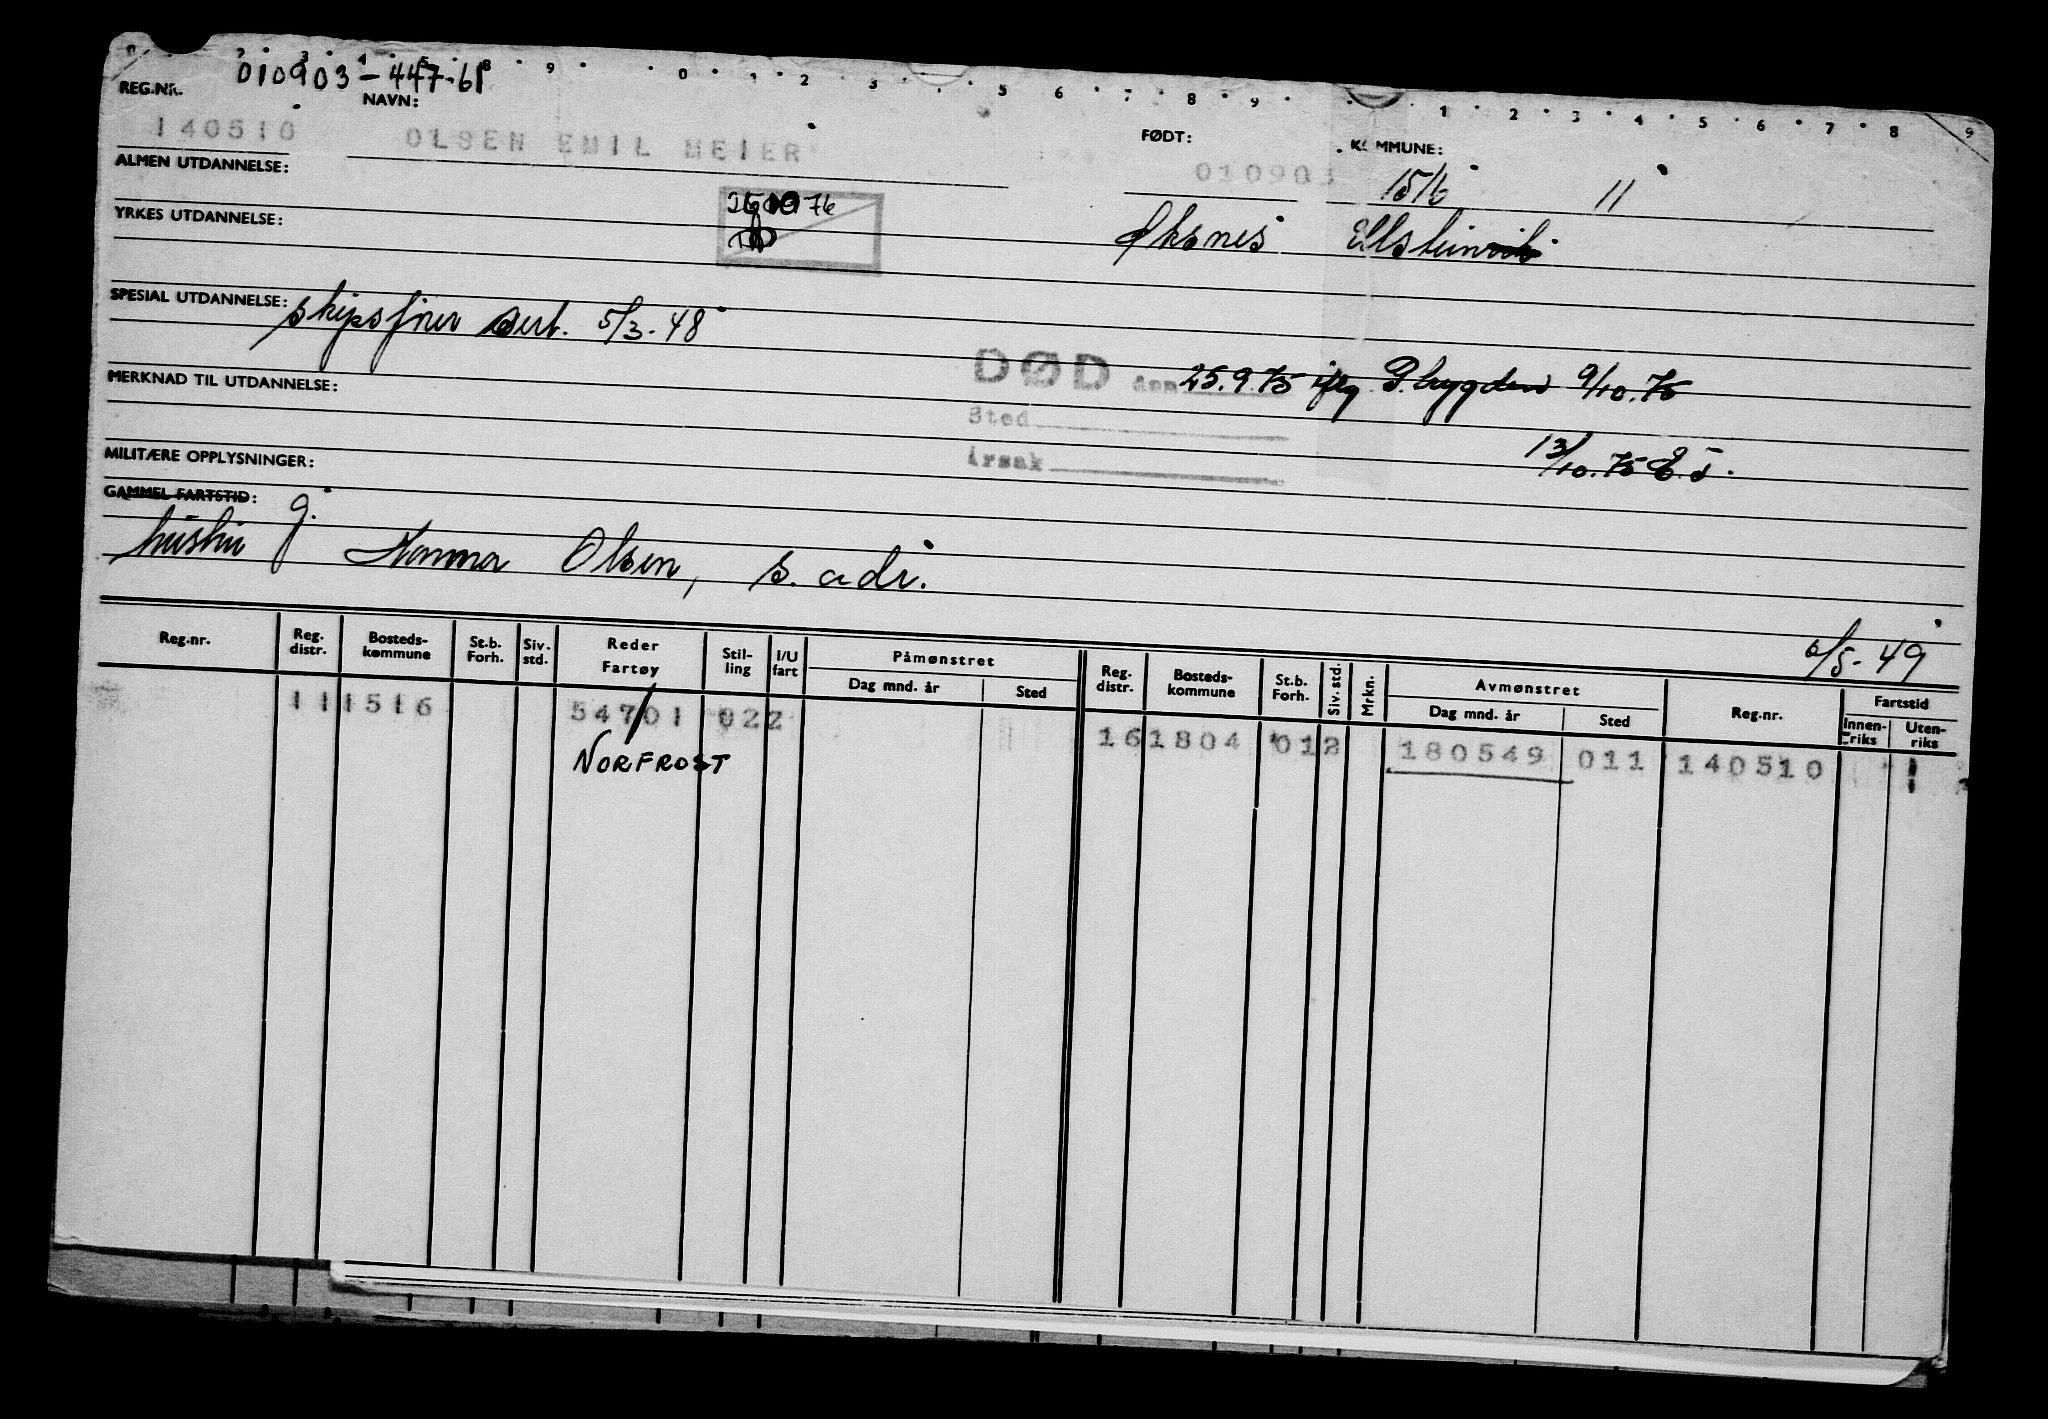 010903-447-61
REG.NR. NAVN: FØDT: KOMMUNE:
140510 OLSEN EMIL MEIER 010903 1516 11
ALMEN UTDANNELSE:
YRKES UTDANNELSE: Øksnes
SPESIAL UTDANNELSE: skipsfører sert. 5/3-48
MERKNAD TIL UTDANNELSE:
DØD den 25.9.75 iflg. 9/10.75
Sted
MILITÆRE OPPLYSNINGER: Årsak 13/10.75
GAMMEL FARTSTID: g.
hustru Hanna Olsen, s. adr.
/5-49
Reg.nr. Reg. distr. Bosteds-kommune St.b. Forh. Siv. std. Reder Fartøy Stil-ling I/U fart Påmønstret Dag mnd. år Sted Reg. distr. Bosteds-kommune St.b. Forh. Siv. std. Mrkn. Avmønstret Dag mnd. år Sted Reg.nr. Fartstid Innen-riks Uten-riks
11 1516 54701 022 16 1804 012 180549 011 140510
NORFROST